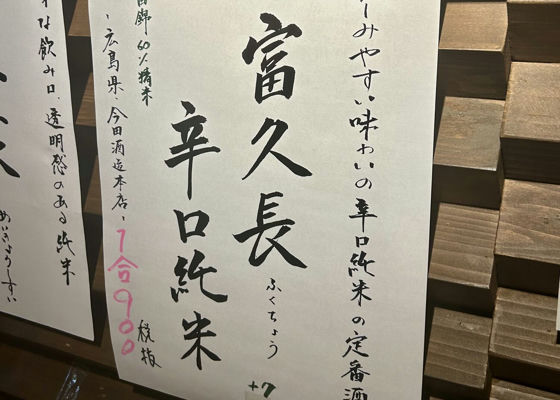 しみやすい味わいの辛口純米の定番酒
富久長
ふくちょう
辛口純米
+7
錦 60%精米
・広島県・今田酒造本店・
1合900
税抜
な飲み口、透明感のある純米